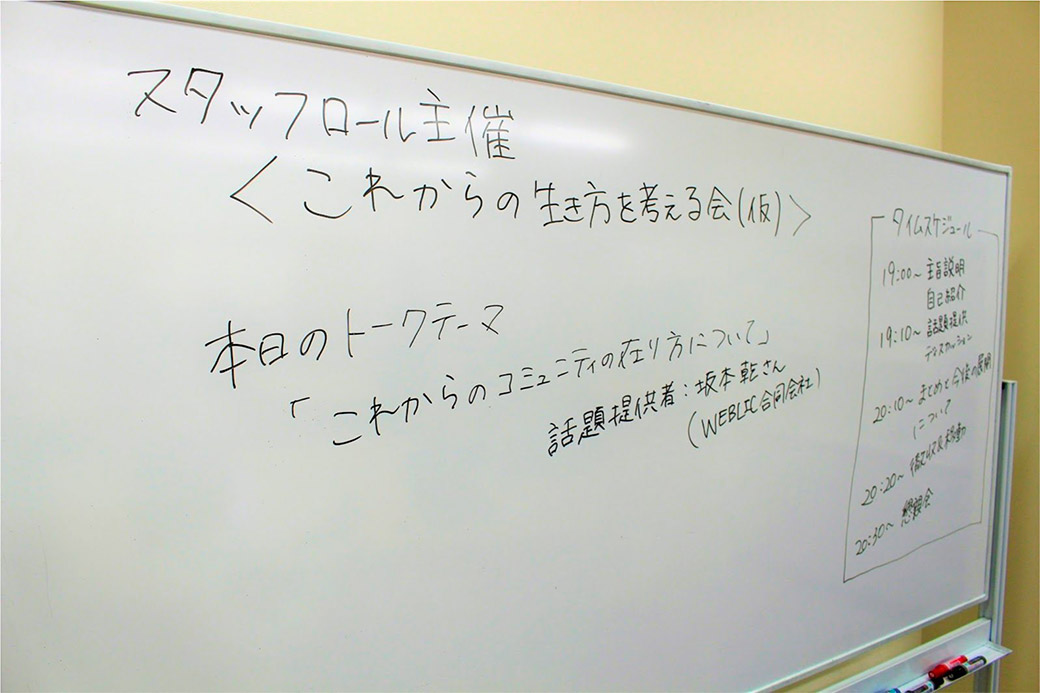 スタッフロール主催
<これからの生き方を考える会(仮)>
本日のトークテーマ
「これからのコミュニティの在り方について」
話題提供者:坂本乾さん
(WEBLIC合同会社)
タイムスケジュール
19:00～ 主旨説明
自己紹介
19:10～ 話題提供
ディスカッション
20:10～ まとめと今後の展開
について
20:20～ 撤収&移動
20:30～ 懇親会